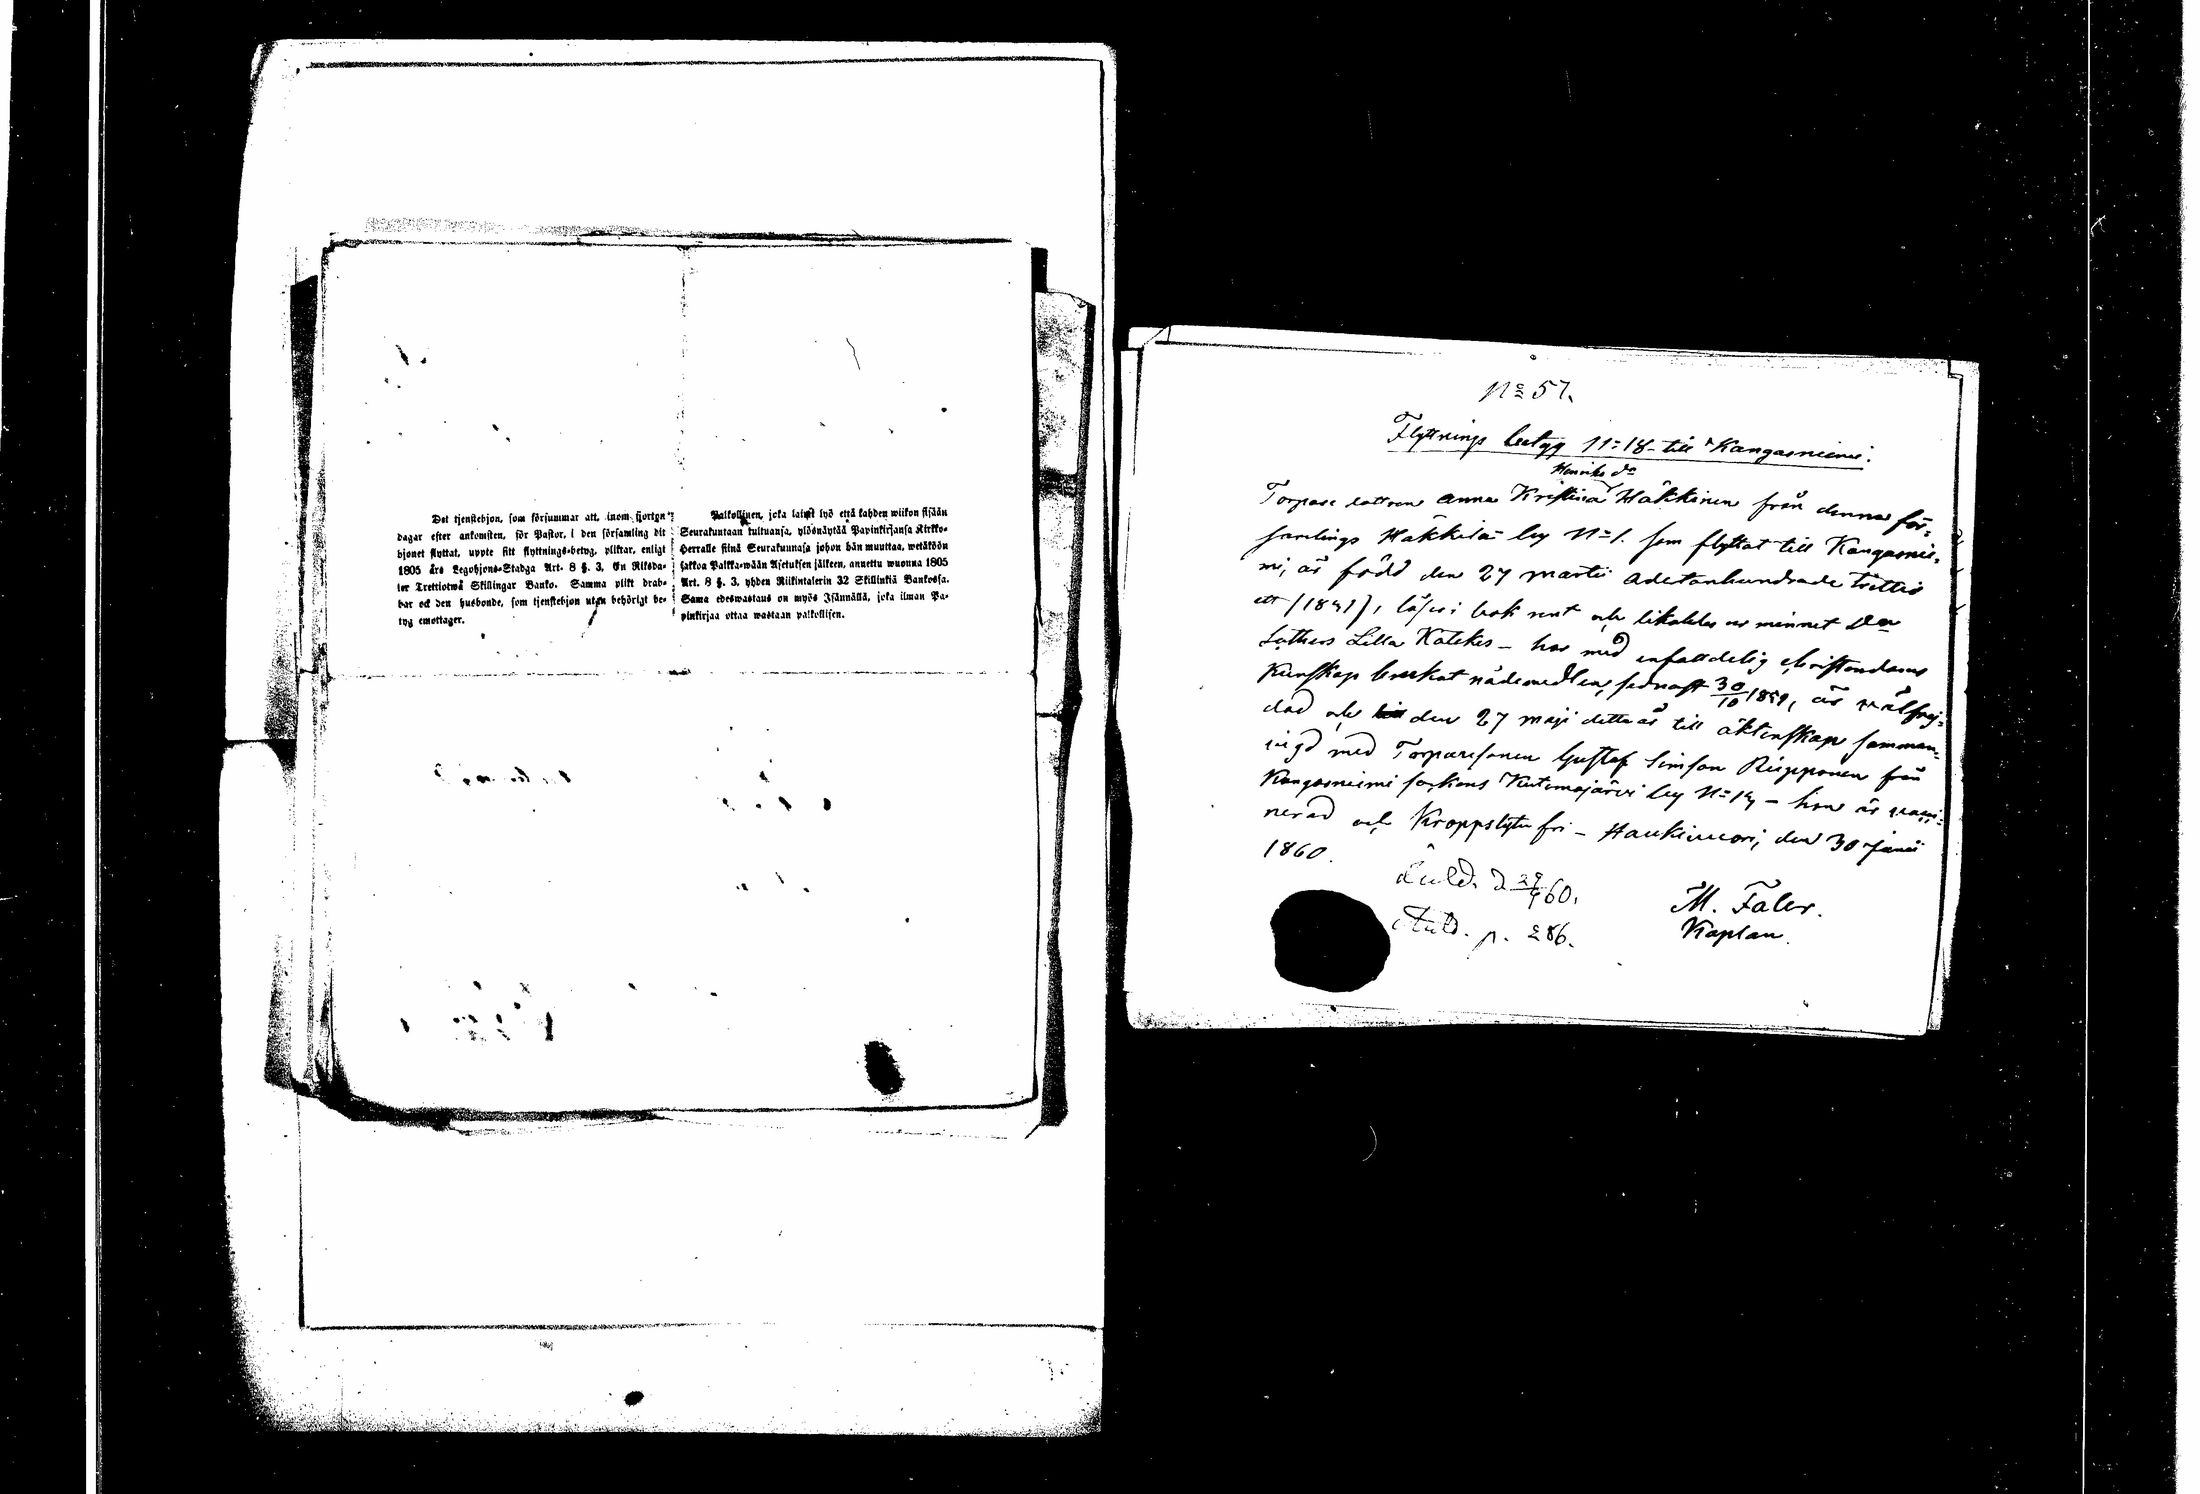 Det tjenstehjon, som försummar att, inom fjorton
dagar efter ankomsten, för Pastor, i den församling dit
hjonet flyttat, uppte sitt flyttnings-betyg, pliktar, enligt
1805 års Legohjons-Stadga Art. 8 §. 3. En Riksda-
ler Trettiotwå Skillingar Banko. Samma plikt drab-
bar ock den husbonde, som tjenstehjon utan behörigt be-
tyg emottager.
Palkollinen, joka laimi lyö että kahden wiikon sisään
Seurakuntaan tultuansa, ylösnäytää Papinkirjansa Kirkko-
Herralle siinä Seurakunnasa johon hän muuttaa, wetäköön
sakkoa Palkka-wään Asetuksen jälkeen, annettu wuonna 1805
Art. 8 §. 3. yhden Riikintalerin 32 Skillinkiä Bankossa.
Sama edeswastaus on myös Isännällä, joka ilman Pa-
pinkirjaa ottaa wastaan palkollisen.
No 57.
Flyttnings betyg No 18 till Kangasniemi.
Henriks dr
Torpare dottren Anna Kristina Häkkinen från denna för-
samlings Häkkilä by No 1. som flyttat till Kangasnie-
mi, är född den 27 martii Adertonhundrade trettio
ett (1831), läser i bok rent och likaledes ur minnet Dr
Luthers Lilla Katekes – har med enfaldelig christendoms
kunskap brukat nådemedlen, sednast 30/10 1859, är välfrej-
dad och den 27 maji detta år till äktenskap samman-
vigd med Torparesonen Gustaf Simson Riipponen från
Kangasniemi sockens Kutemajärvi by No 14 – hon är vacci-
nerad och kroppslytes fri – Haukivuori, den 30 Junii
1860.
M. Faler.
60.
Kaplan.
p. 286.